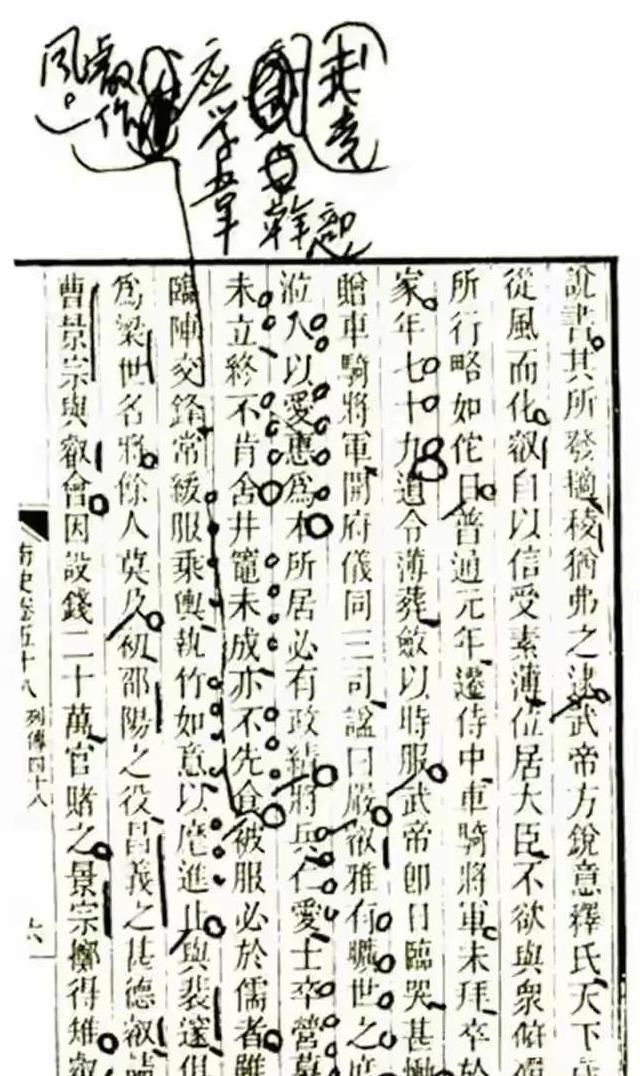 我党
幹部
应学韋
叡作
风。
說書其所發擿稜猶弗之逮武帝方銳意釋氏天下
從風而化叡自以信受素薄位居大臣不欲與衆俯
所行略如佗日普通元年遷侍中車騎將軍未拜卒於
家年七十九遺令薄葬斂以時服武帝即日臨哭甚慟
贈車騎將軍開府儀同三司諡曰嚴叡雅有曠世之度
涖人以愛惠爲本所居必有政績將兵仁愛士卒營幕
未立終不肯舍井竈未成亦不先食被服必於儒者雖
臨陣交鋒常緩服乘輿執竹如意以麾進止與裴邃俱
爲梁世名將餘人莫及初邵陽之役昌義之甚德叡請
曹景宗與叡會因設錢二十萬官賭之景宗擲得雉叡
南史卷五十八 列傳四十八 六